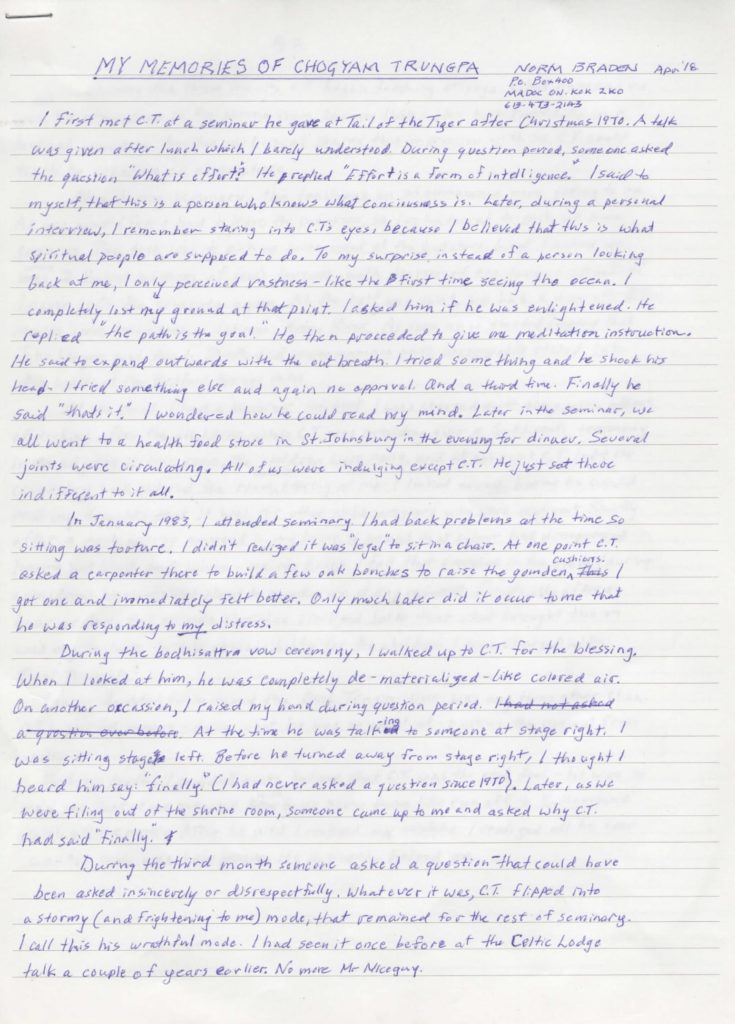 MY MEMORIES OF CHOGYAM TRUNGPA NORM BRADEN Apr '18
P.O. Box 400
MADOC ON. K0K 2K0
613-473-2143
I first met C.T. at a seminar he gave at Tail of the Tiger after Christmas 1970. A talk
was given after lunch which I barely understood. During question period, someone asked
the question "What is effort"? He preplied "Effort is a form of intelligence." I said to
myself, that this is a person who knows what conciousness is. Later, during a personal
interview, I remember staring into C.T's eyes, because I believed that this is what
spiritual people are supposed to do. To my surprise, instead of a person looking
back at me, I only perceived vastness - like the first time seeing the ocean. I
completely lost my ground at that point. I asked him if he was enlightened. He
replied "the path is the goal." He then proceeded to give me meditation instruction.
He said to expand outwards with the out breath. I tried something and he shook his
head. I tried something else and again no approval. And a third time. Finally he
said "thats it." I wondered how he could read my mind. Later in the seminar, we
all went to a health food store in St. Johnsbury in the evening for dinner. Several
joints were circulating. All of us were indulging except C.T. He just sat there
indifferent to it all.
In January 1983, I attended seminary. I had back problems at the time so
sitting was tooture. I didn't realized it was "legal" to sit in a chair. At one point C.T.
asked a carpenter there to build a few oak benches to raise the gomden cushions. This I
got one and immediately felt better. Only much later did it occur to me that
he was responding to my distress.
During the bodhisattva vow ceremony, I walked up to C.T. for the blessing.
When I looked at him, he was completely de-materialized - like colored air.
On another occassion, I raised my hand during question period. I had not asked
a question ever before. At the time he was talking to someone at stage right. I
was sitting stage left. Before he turned away from stage right, I thought I
heard him say: "finally." (I had never asked a question since 1970). Later, as we
were filing out of the shrine room, someone came up to me and asked why C.T.
had said "Finally."
During the third month someone asked a question - that could have
been asked insincerely or disrespectfully. Whatever it was, C.T. flipped into
a stormy (and frightening to me) mode, that remained for the rest of seminary.
I call this his wrathful mode. I had seen it once before at the Celtic Lodge
talk a couple of years earlier. No more Mr Niceguy.